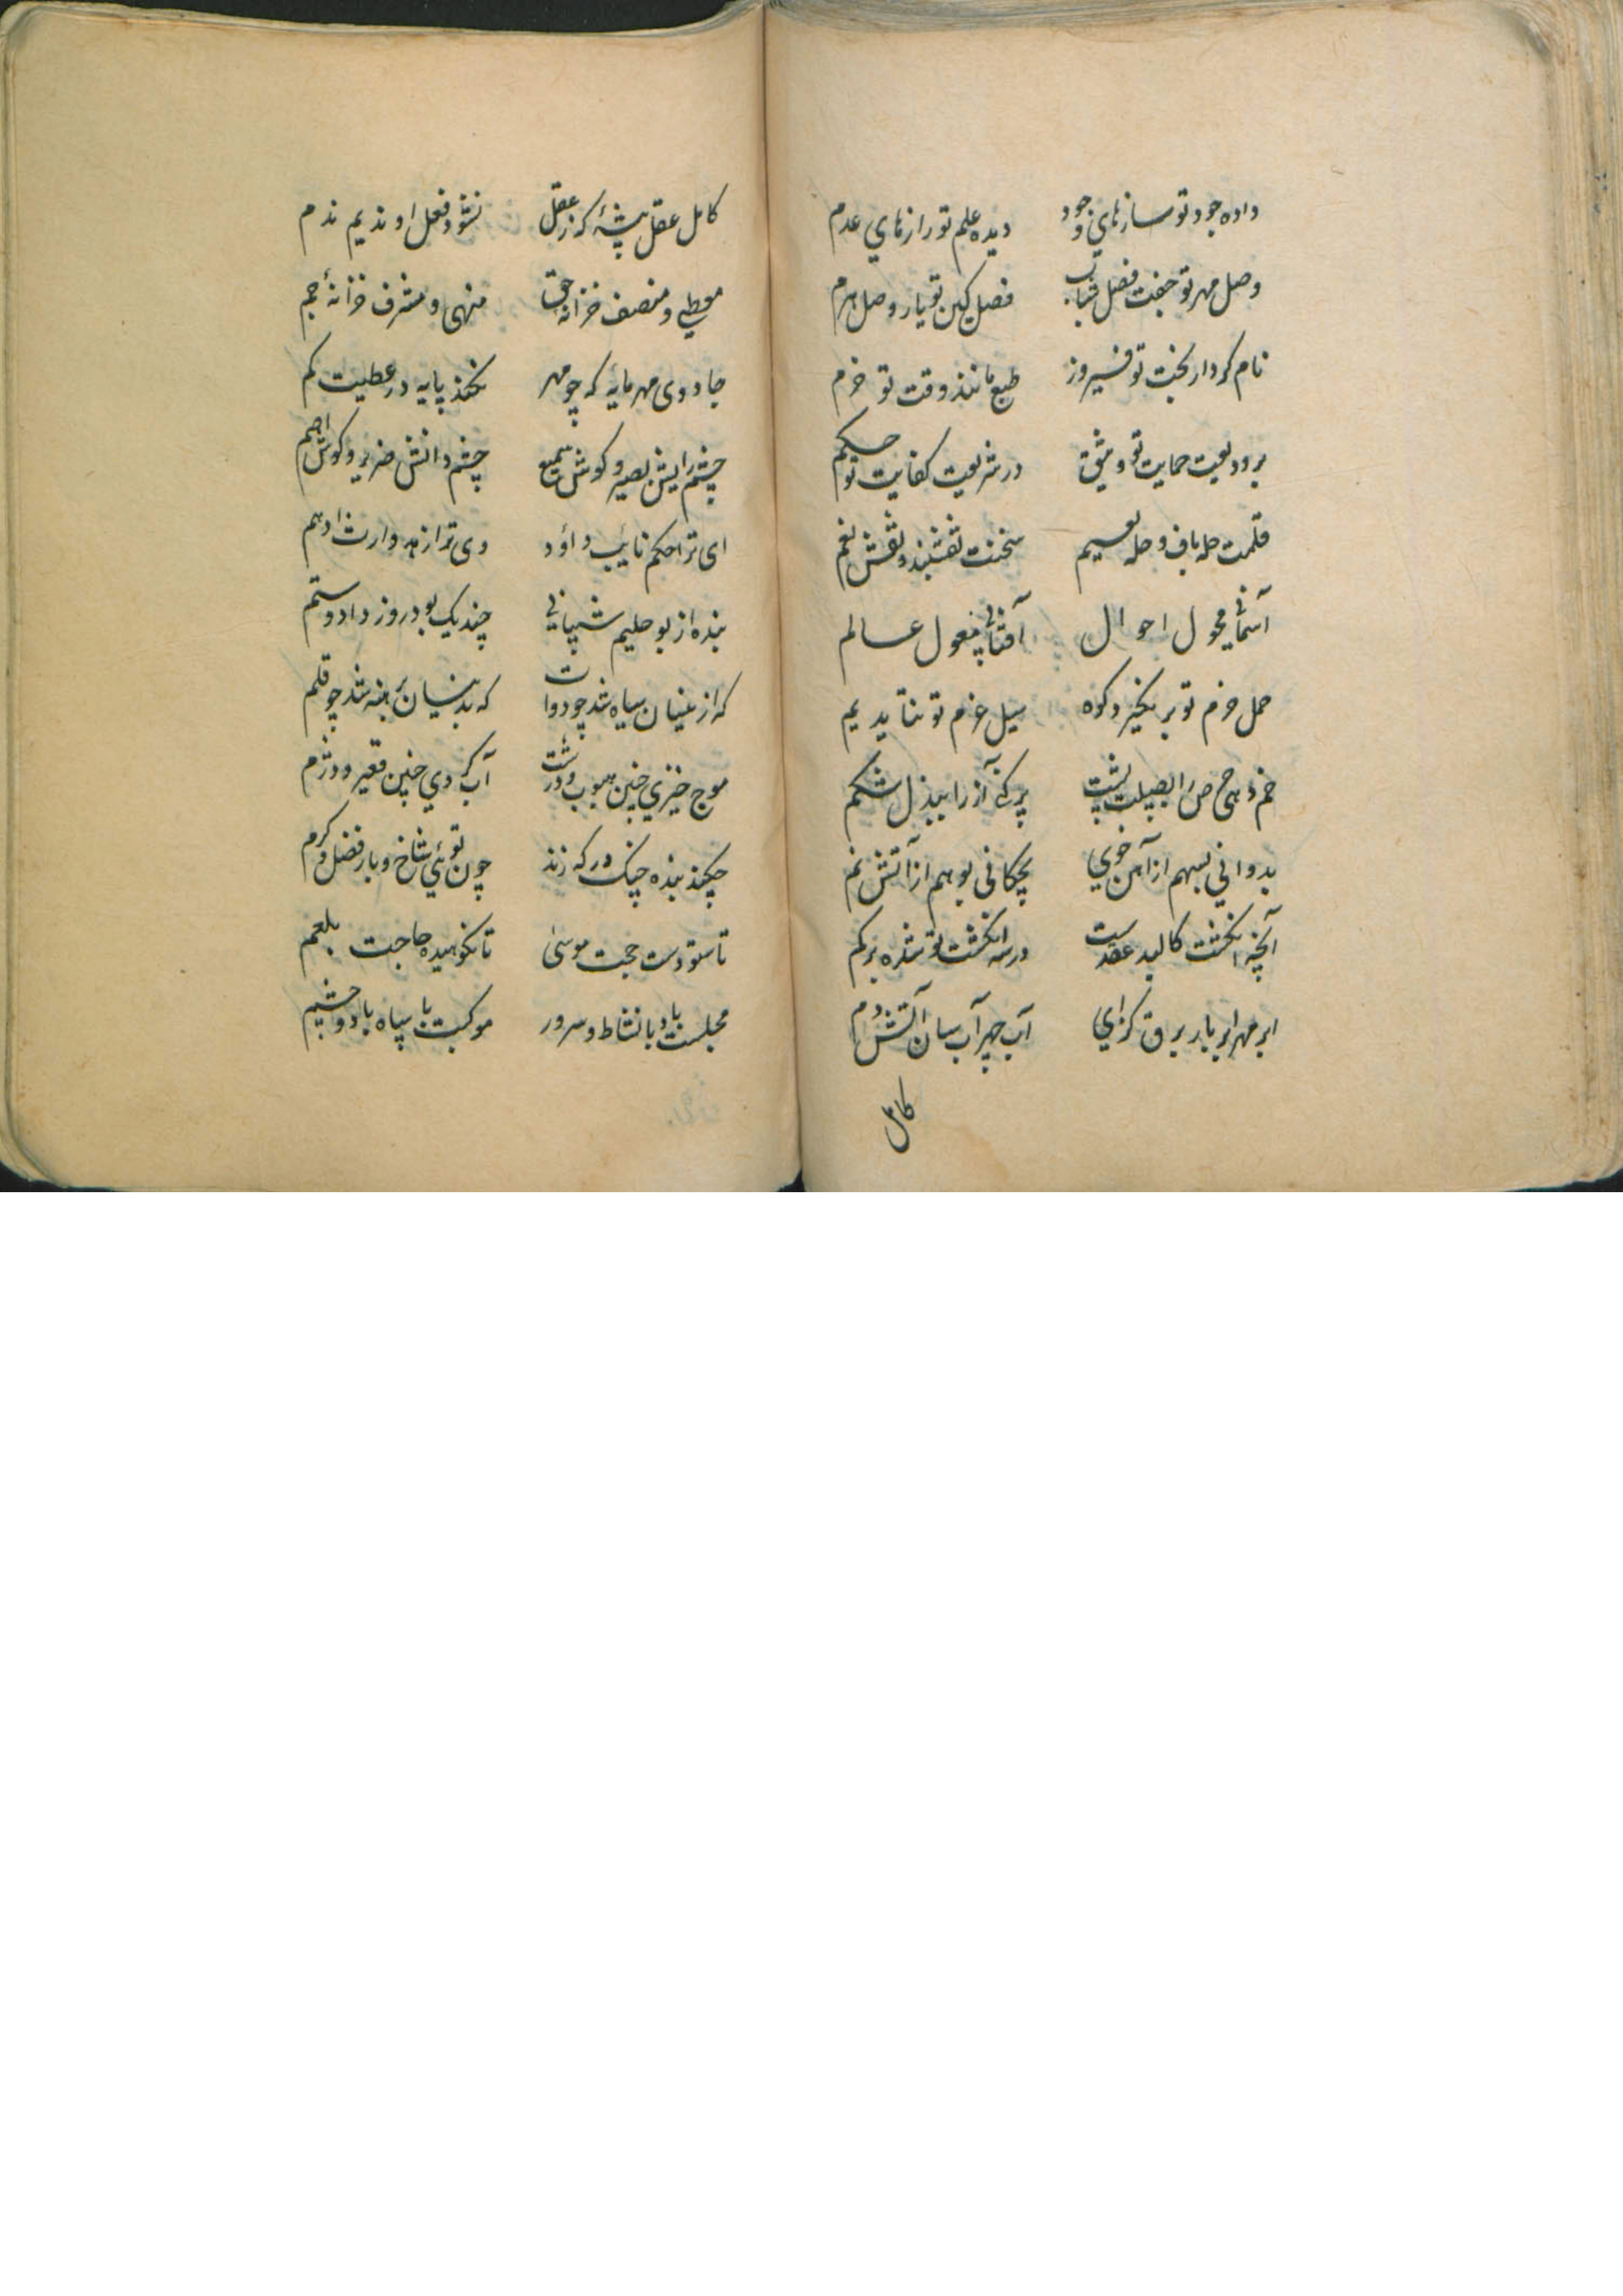 داده جود تو سازهای وجود دیده علم تو رازهای عدم
وصل مهر تو جفت فصل شباب فصل کین تو یار وصل هرم
نام کردار بخت تو فیروز طبع مانند وقت تو خرم
بر ودیعت حمایت تو وثیق در شریعت کفایت تو حکم
قلمت حله باف و حله سخنت نقشبند و نقش نغم
آسمانی محول احوال آفتابی عالم
حمل حزم تو بر نگیرد کوه سیل عزم تو نتابد یم
خم دهی حرص را پشت پر کنی آز را ببذل شکم
بدوانی بسهم از آهن خوی بچکانی بوهم از آتش نم
آنچه انگشت کالبد عقدست در سر انگشت تو شده
ابر مهر ابر بار برق گرای آب چهر آب سان آتش دم
کامل
کامل عقل پیشهٔ کز عقل نشود فعل او ندیم ندم
معطی و منصف خزانه حق منهی و مشرف خزانهٔ جم
جادوی مهر مایه که چو مهر نکند پایه در عطیت کم
چشم رایش بصیر و گوش سمیع چشم دانش ضریر و گوش اصم
ای ترا حکم نایب داؤد وی ترا زهد وارث ادهم
بنده از بو حلیم شیبانی چند یک بود روز داد و ستم
که از سیاه شد چو دوات که برهنه شد چو قلم
موج خیزی چنین مهوب و درشت آب گردی چنین قعیر و دژم
چکند بنده چنگ در که زند چون توئی شاخ و بار فضل و کرم
تا ستودست حجت موسی تا نکوهیده حاجت بلعم
مجلست باد با نشاط و سرور موکبت با سپاه باد و حشم